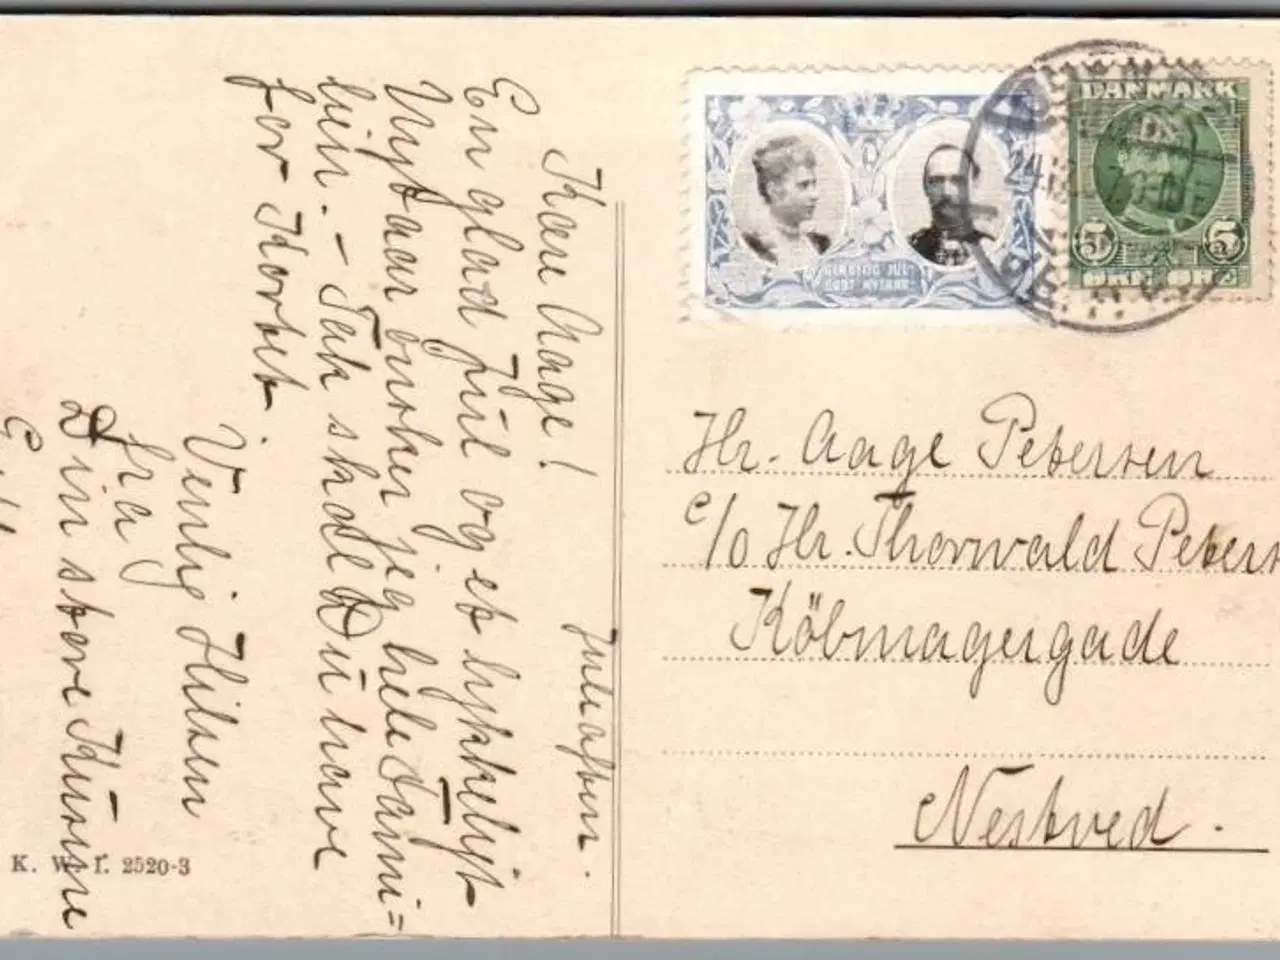 Juleaften.
Kære Aage!
En glad Jul og et lykkeligt
Nytaar ønsker jeg hele Fami=
lien. - Tak skal Du have
for Kortet.
Venlig Hilsen
fra
Din store Kusine
GLÆDELIG JUL
GODT NYTAAR
DANMARK
5 5
ØRE ØRE
Hr. Aage Petersen
c/o Hr. Thorwald Peters
Köbmagergade
Nestved.
K. W. I. 2520-3